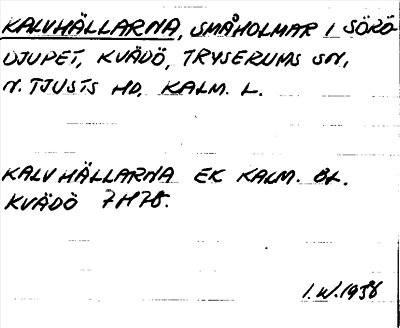 KALVHÄLLARNA, SMÅHOLMAR I SÖRÖ-
DJUPET, KVÄDÖ, TRYSERUMS SN,
N. TJUSTS HD, KALM. L.
KALVHÄLLARNA EK KALM. BL.
KVÄDÖ 7H7B.
I.W. 1938